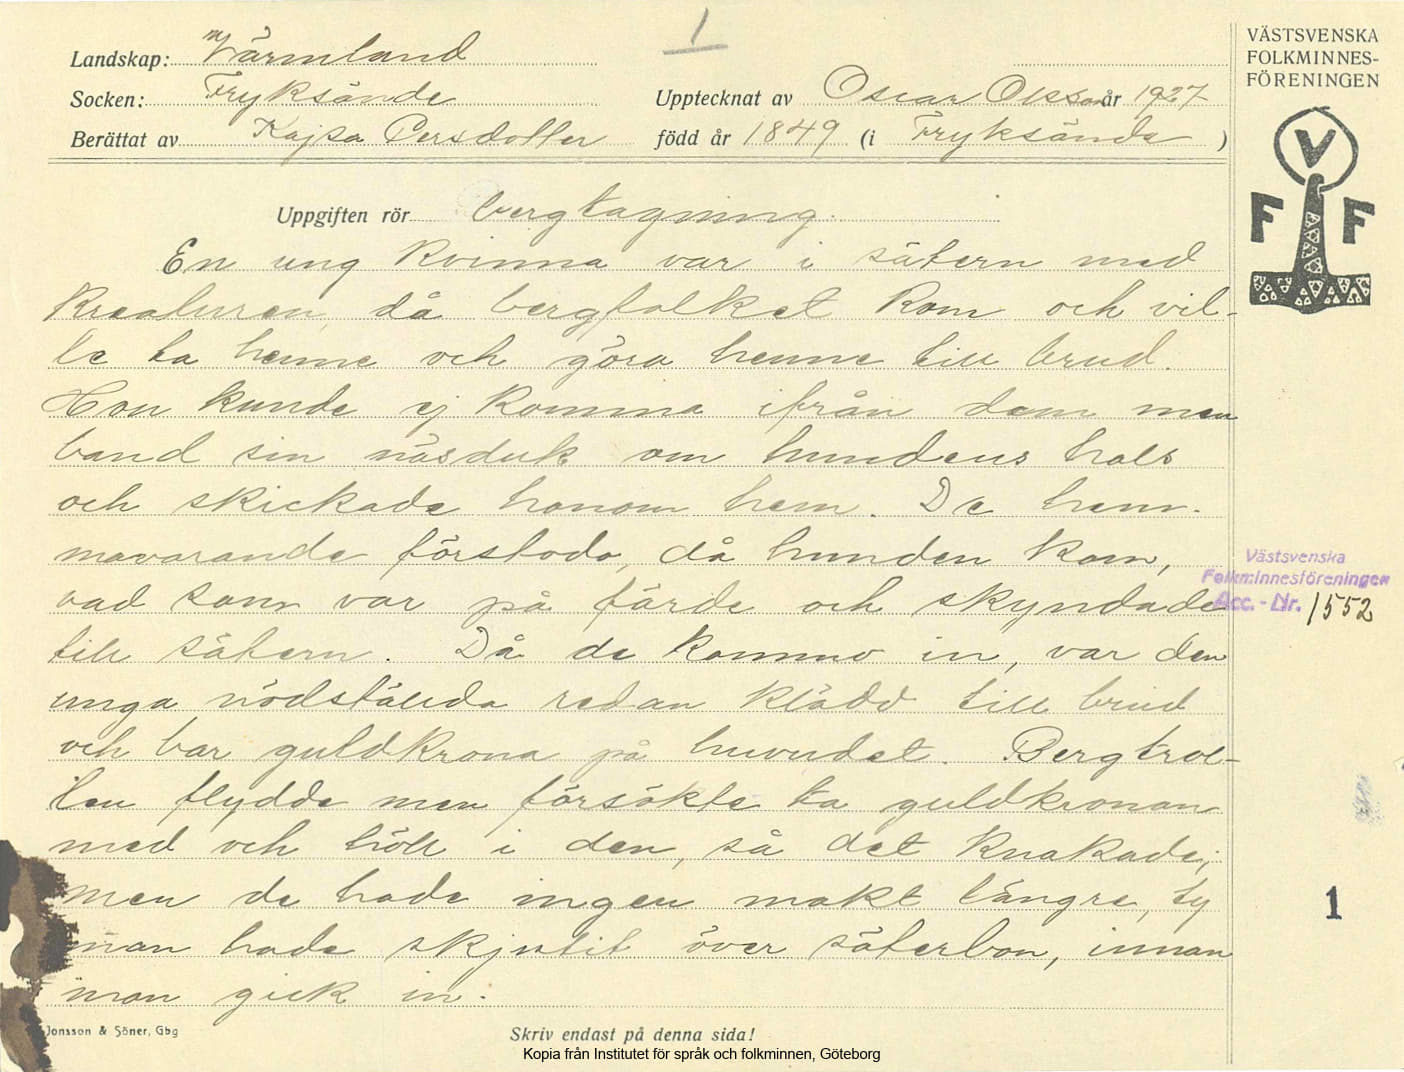 1
VÄSTSVENSKA
FOLKMINNES-
FÖRENINGEN
V
F F
Landskap: Värmland
Socken: Fryksände
Upptecknat av Oscar Olsson år 1927
Berättat av Kajsa Persdotter född år 1849 (i Fryksände )
Uppgiften rör bergtagning.
En ung kvinna var i sätern med
kreaturen, då bergfolket kom och vil-
le ta henne och göra henne till brud.
Hon kunde ej komma ifrån dem men
band sin näsduk om hundens hals
och skickade honom hem. De hem-
mavarande förstodo, då hunden kom,
vad som var på färde och skyndade
till sätern. Då de kommo in, var den
unga nödställda redan klädd till brud
och bar guldkrona på huvudet. Bergtrol-
len flydde men försökte ta guldkronan
med och höll i den, så det knakade;
men de hade ingen makt längre, ty
man hade skjutit över säterbon, innan
man gick in.
Västsvenska
Folkminnesföreningen
Acc.-Nr. 1552
1
Jonsson & Söner, Gbg
Skriv endast på denna sida!
Kopia från Institutet för språk och folkminnen, Göteborg